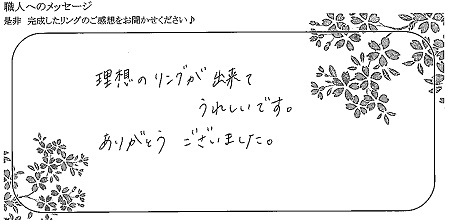 職人へのメッセージ
是非 完成したリングのご感想をお聞かせください♪
理想のリングが出来て
うれしいです。
ありがとう ございました。